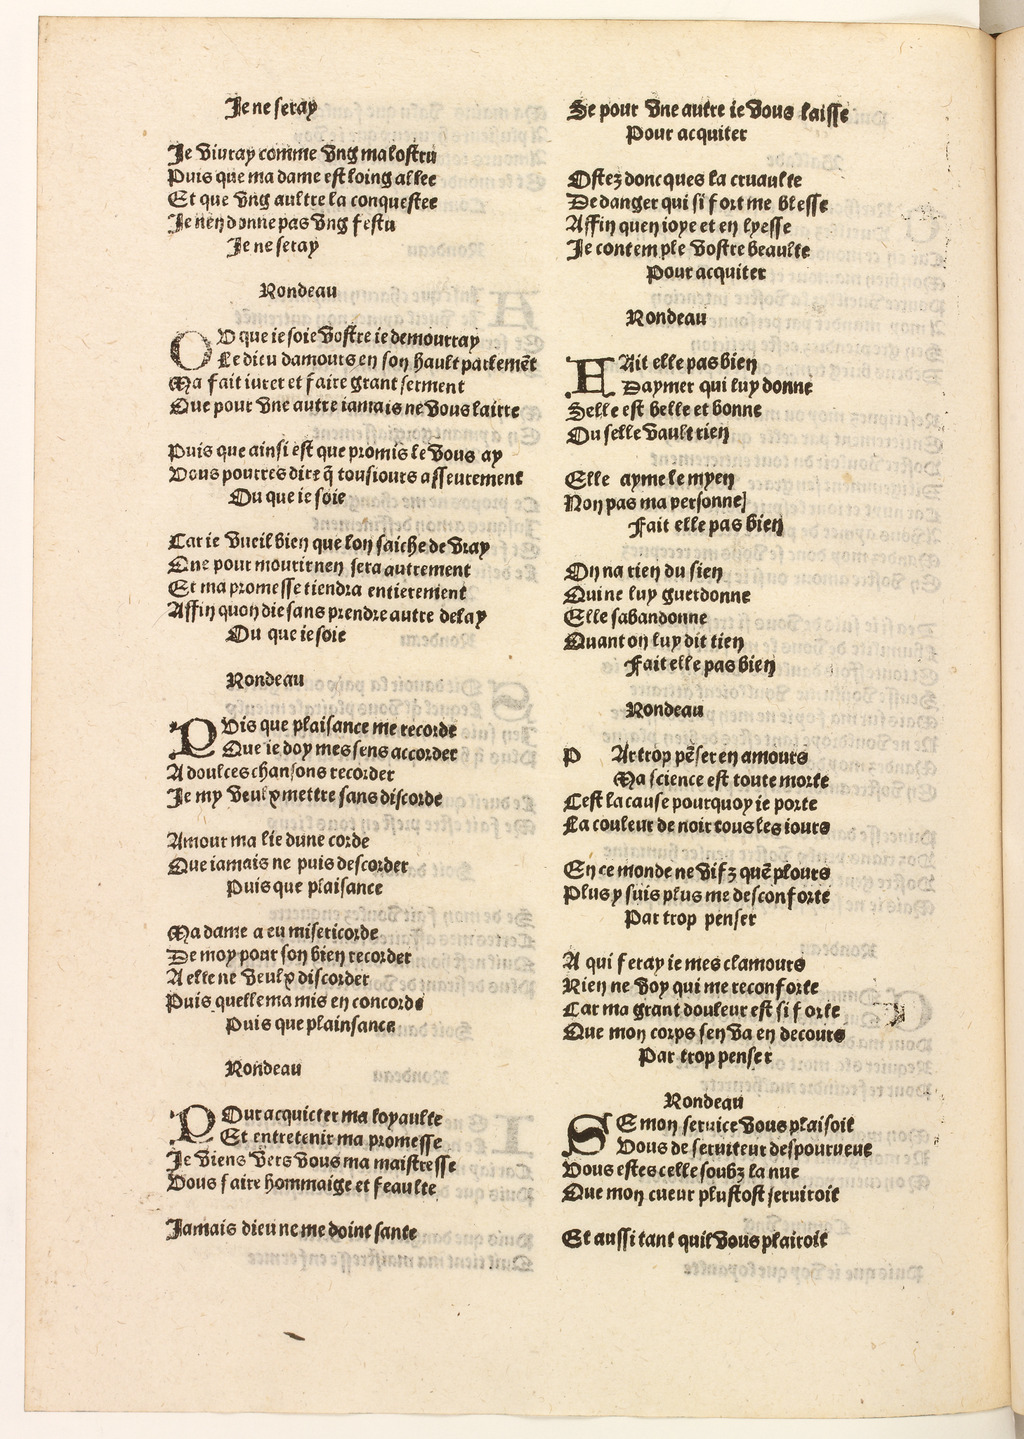 Je ne seray
Je viuray comme vng malostru
Puis que ma dame est loing allee
Et que vng aultre la conquestee
Je nen donne pas vng festu
Je ne seray
Rondeau
OV que ie soie vostre ie demourray
Le dieu damours en son hault parlemēt
Ma fait iurer et faire grant serment
Que pour vne autre iamais ne vous lairre
Puis que ainsi est que promis le vous ay
Vous pourres dire q̄ tousiours asseurement
Ou que ie soie
Car ie vueil bien que lon saiche de vray
Que pour mourir nen sera autrement
Et ma promesse tiendra entierement
Affin quon die sans prendre autre delay
Ou que ie soie
Rondeau
PVis que plaisance me recorde
Que ie doy mes sens accorder
A doulces chansons recorder
Je my veulx mettre sans discorde
Amour ma lie dune corde
Que iamais ne puis descorder
Puis que plaisance
Ma dame a eu misericorde
De moy pour son bien recorder
A elle ne veulx discorder
Puis quelle ma mis en concorde
Puis que plainsance
Rondeau
POur acquicter ma loyaulte
Et entretenir ma promesse
Je viens vers vous ma maistresse
Vous faire hommaige et feaulte
Jamais dieu ne me doint sante
Se pour vne autre ie vous laisse
Pour acquiter
Ostez doncques la cruaulte
De danger qui si fort me blesse
Affin quen ioye et en lyesse
Je contemple vostre beaulte
Pour acquiter
Rondeau
FAit elle pas bien
Daymer qui luy donne
Selle est belle et bonne
Ou selle vault rien
Elle ayme le myen
Non pas ma personne
Fait elle pas bien
On na rien du sien
Qui ne luy guerdonne
Elle sabandonne
Quant on luy dit tien
Fait elle pas bien
Rondeau
P Ar trop pēser en amours
Ma science est toute morte
Cest la cause pourquoy ie porte
La couleur de noir tous les iours
En ce monde ne vifz quē plours
Plus y suis plus me desconforte
Par trop penser
A qui feray ie mes clamours
Rien ne voy qui me reconforte
Car ma grant douleur est si forte
Que mon corps sen va en decours
Par trop penser
Rondeau
SE mon seruice vous plaisoit
Vous de seruiteur despourueue
Vous estes celle soubz la nue
Que mon cueur plustost seruiroit
Et aussi tant quil vous plairoit